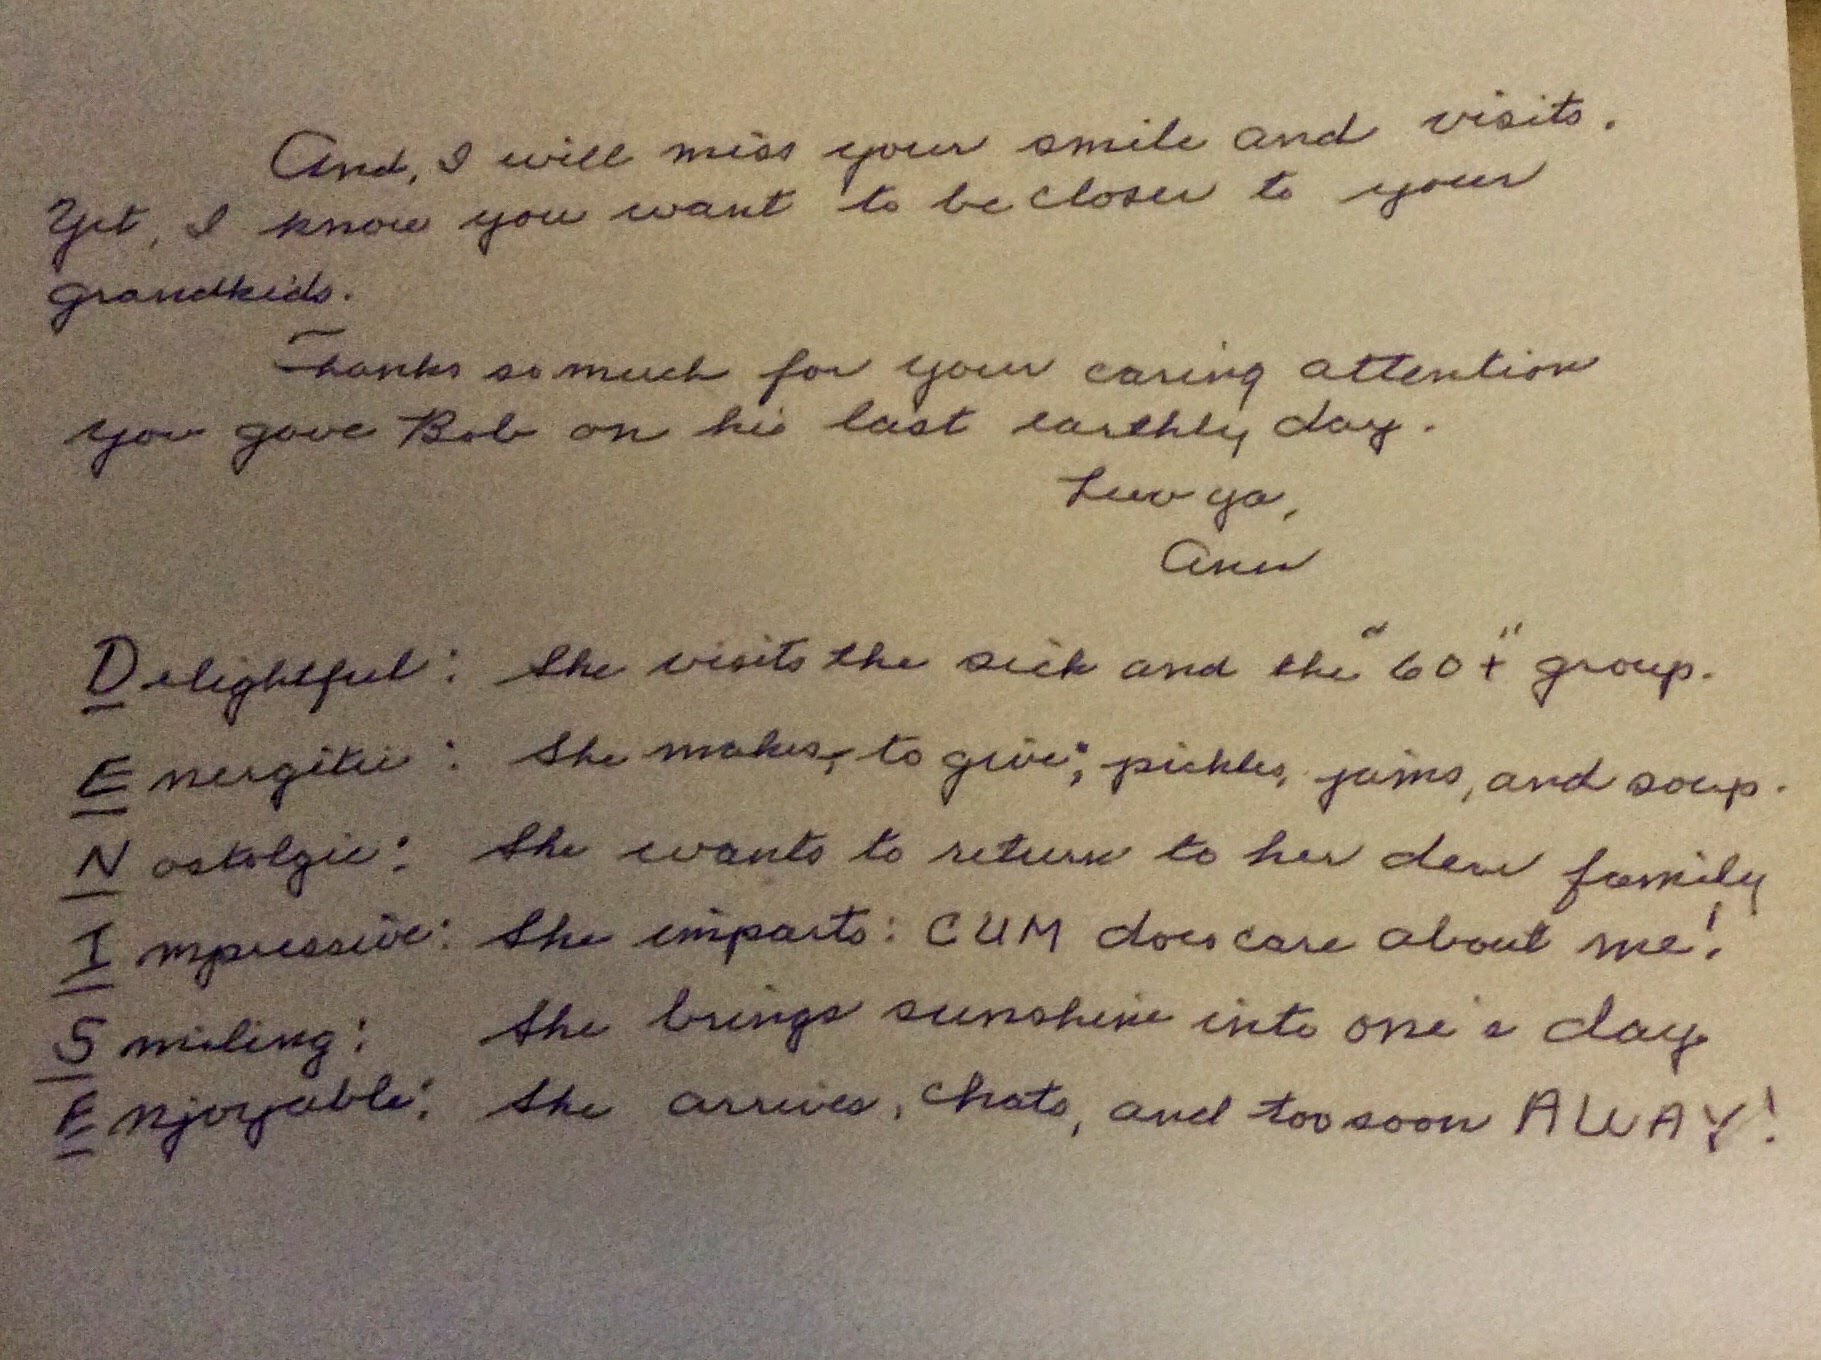 And, I will miss your smile and visits.
Yet, I know you want to be closer to your
grandkids.
Thanks so much for your caring attention
you gave Bob on his last earthly day.
Luv ya,
Ann
Delightful: She visits the sick and the "60+" group.
Energitic: She makes, to give; pickles, jams, and soup.
Nostalgic: She wants to return to her dear family
Impressive: She imparts: CUM does care about me!
Smiling: She brings sunshine into one's day
Enjoyable: She arrives, chats, and too soon AWAY!